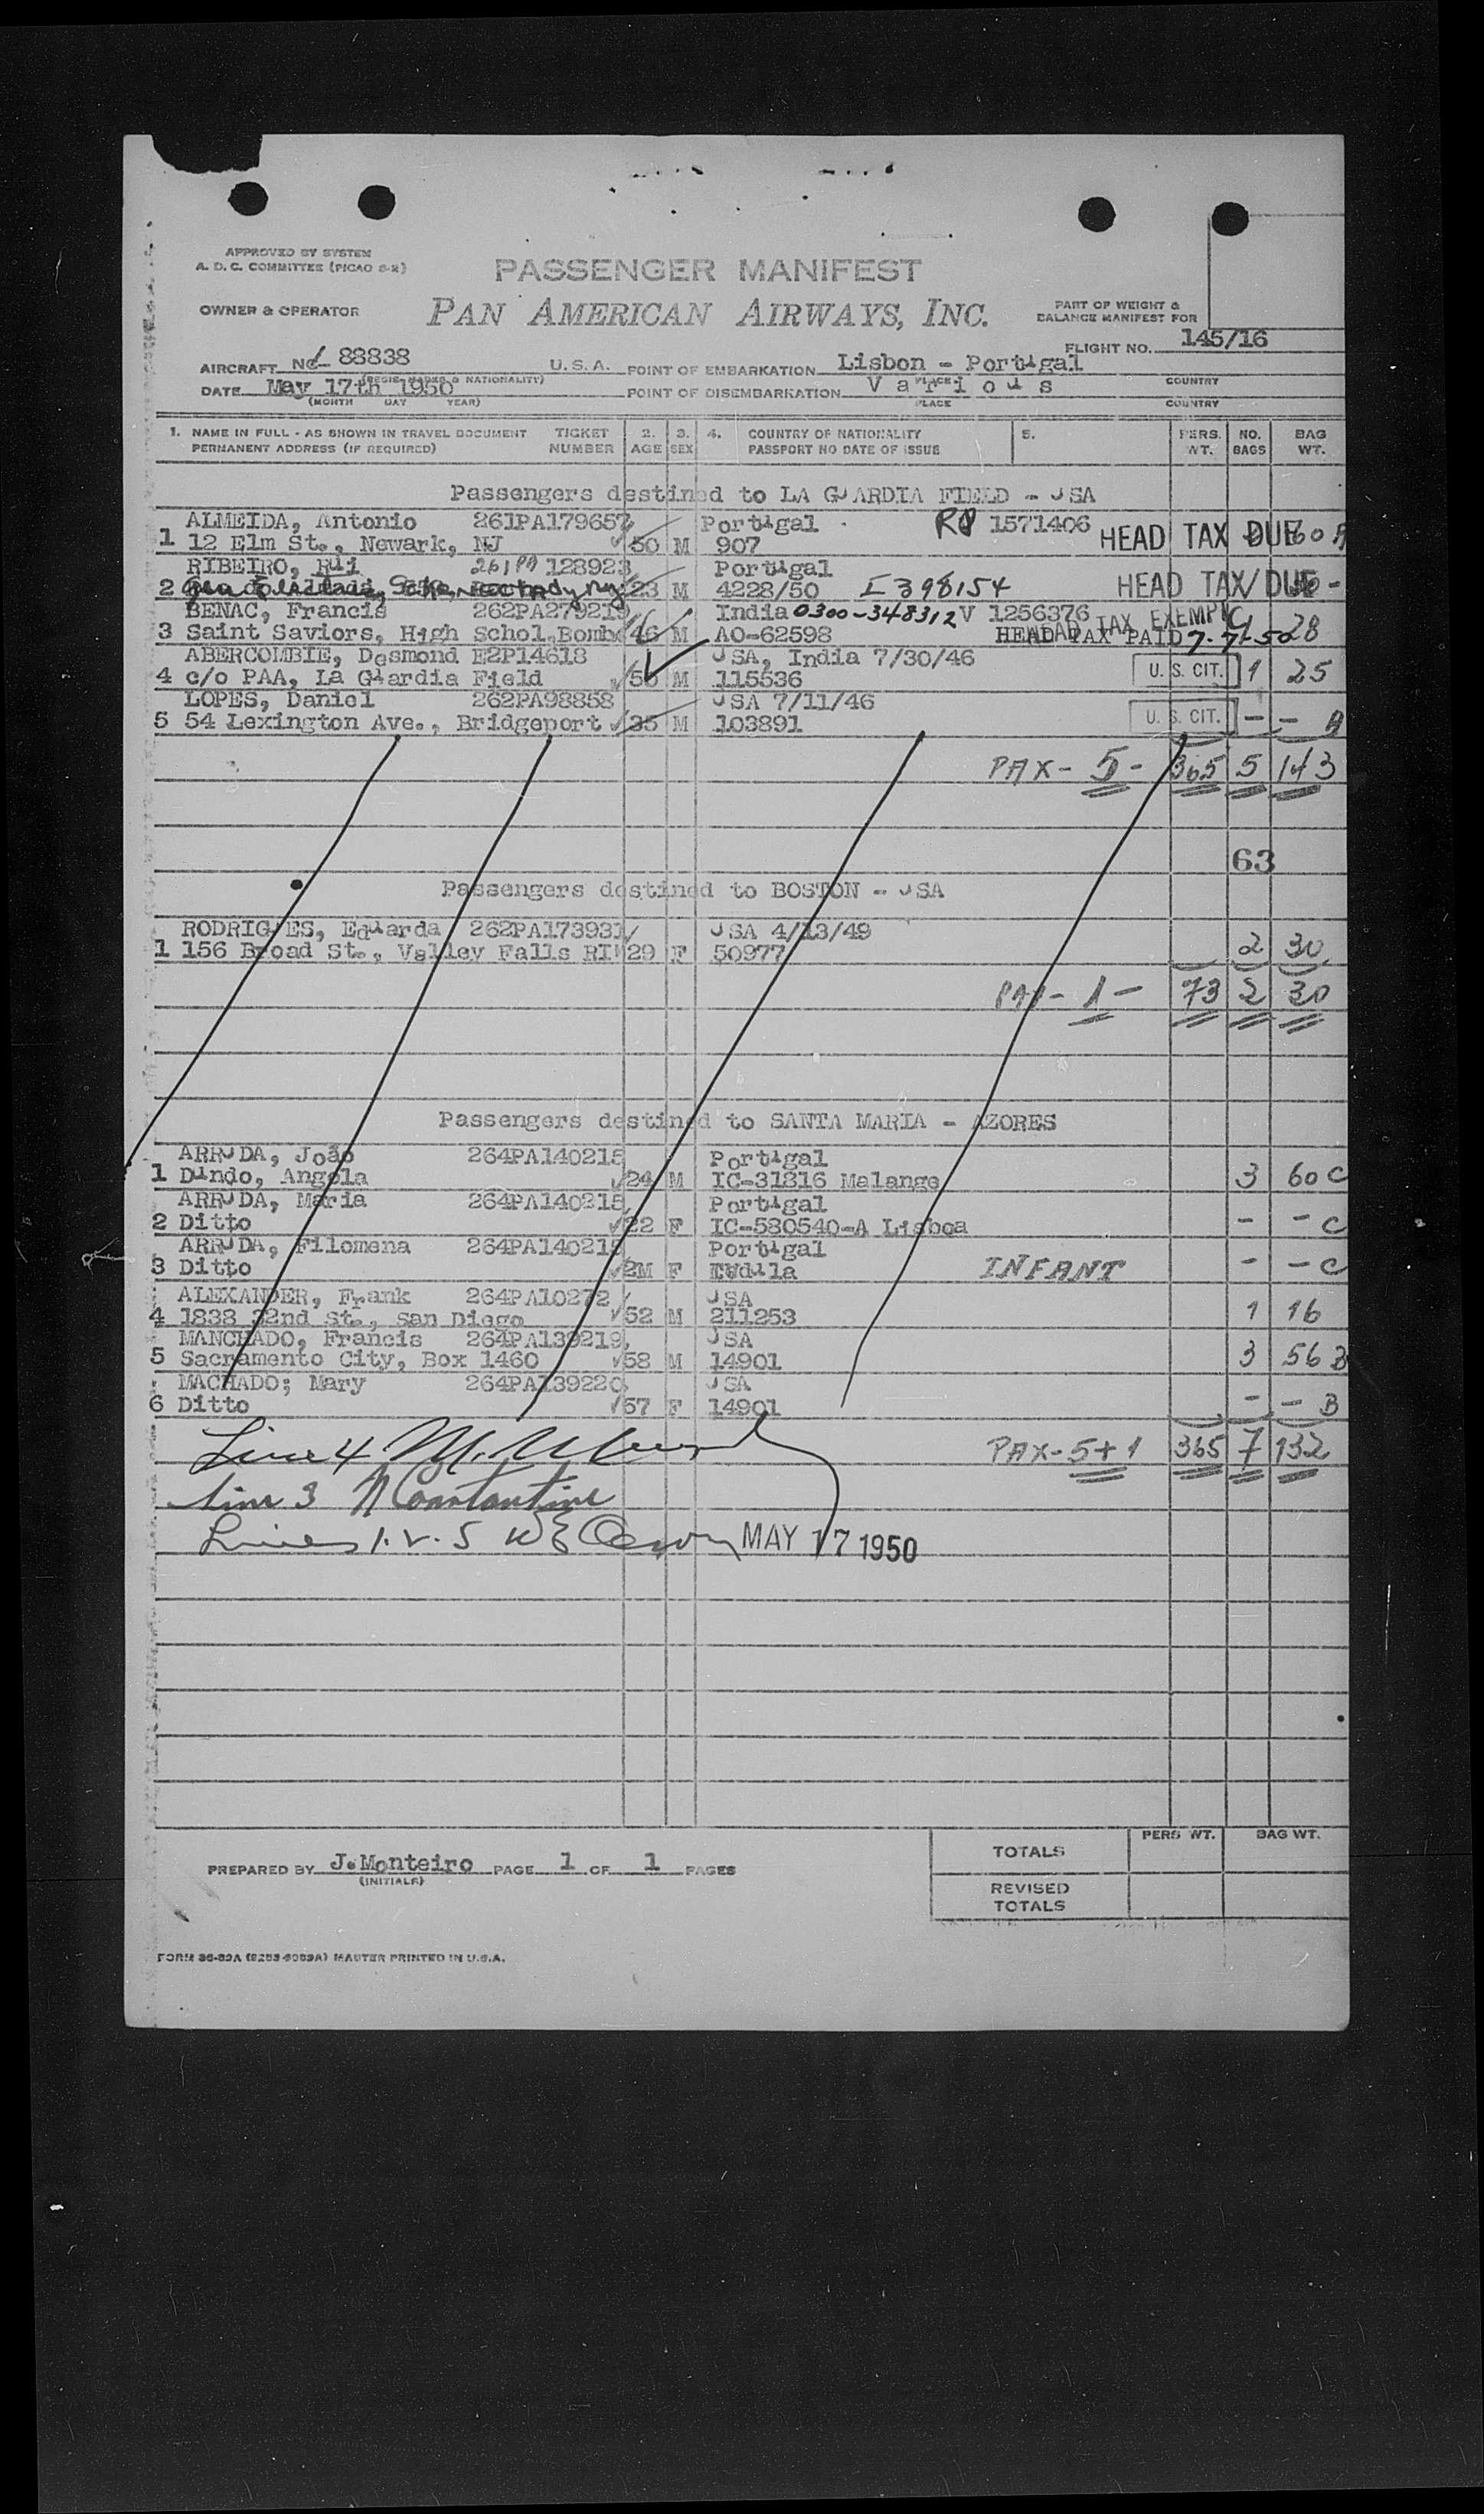 APPROVED BY SYSTEM
A. D. C. COMMITTEE (PICAO S-2)
PASSENGER MANIFEST
OWNER & OPERATOR PAN AMERICAN AIRWAYS, INC.
PART OF WEIGHT &
BALANCE MANIFEST FOR
FLIGHT NO. 145/16
AIRCRAFT NC- 88838 U.S.A. POINT OF EMBARKATION Lisbon - Portugal
(REGIS. MARKS & NATIONALITY) PLACE COUNTRY
DATE May 17th 1950 POINT OF DISEMBARKATION Various
(MONTH DAY YEAR) PLACE COUNTRY
1. NAME IN FULL - AS SHOWN IN TRAVEL DOCUMENT TICKET 2. 3. 4. COUNTRY OF NATIONALITY 5. PERS. NO. BAG
PERMANENT ADDRESS (IF REQUIRED) NUMBER AGE SEX PASSPORT NO DATE OF ISSUE WT. BAGS WT.
Passengers destined to LA GUARDIA FIELD - USA
ALMEIDA, Antonio 261PA179657 Portugal 1571406
1 12 Elm St., Newark, NJ 50 M 907 HEAD TAX DUE 60 A
RIBEIRO, Rui 261PA 128923 Portugal
2 Schenectady NY 23 M 4228/50 I 398154 HEAD TAX DUE -
BENAC, Francis 262PA279219 India 0300-348312 V 1256376 HEAD TAX EXEMPT
3 Saint Saviors, High Schol, Bomb 46 M AO-62598 HEAD TAX PAID 7-7-50 28
ABERCOMBIE, Desmond E2P14618 USA, India 7/30/46
4 c/o PAA, La Guardia Field M 115536 U. S. CIT. 1 25
LOPES, Daniel 262PA98858 USA 7/11/46
5 54 Lexington Ave., Bridgeport 35 M 103891 U. S. CIT. - - A
PAX - 5 - 365 5 143
63
Passengers destined to BOSTON - USA
RODRIGUES, Eduarda 262PA173931 USA 4/13/49
1 156 Broad St., Valley Falls RI 29 F 50977 2 30
PAX - 1 - 73 2 30
Passengers destined to SANTA MARIA - AZORES
ARRUDA, João 264PA140215 Portugal
1 Dundo, Angola 24 M IC-31216 Malange 3 60 C
ARRUDA, Maria 264PA140215 Portugal
2 Ditto 22 F IC-580540-A Lisboa - - C
ARRUDA, Filomena 264PA140215 Portugal
3 Ditto 2M F INFANT - - C
ALEXANDER, Frank 264PA10272 USA
4 1838 32nd St., San Diego 52 M 211253 1 16
MANCHADO, Francis 264PA139219 USA
5 Sacramento City, Box 1460 58 M 14901 3 56 B
MACHADO; Mary 264PA139220 USA
6 Ditto 57 F 14901 - - B
Line 4 PAX - 5+1 365 7 132
Line 3 N Constantine
Lines 1. 2. 5 MAY 17 1950
PERS WT. BAG WT.
TOTALS
PREPARED BY J.Monteiro PAGE 1 OF 1 PAGES
(INITIALS)
REVISED
TOTALS
FORM 36-89A (8253-9089A) MASTER PRINTED IN U.S.A.